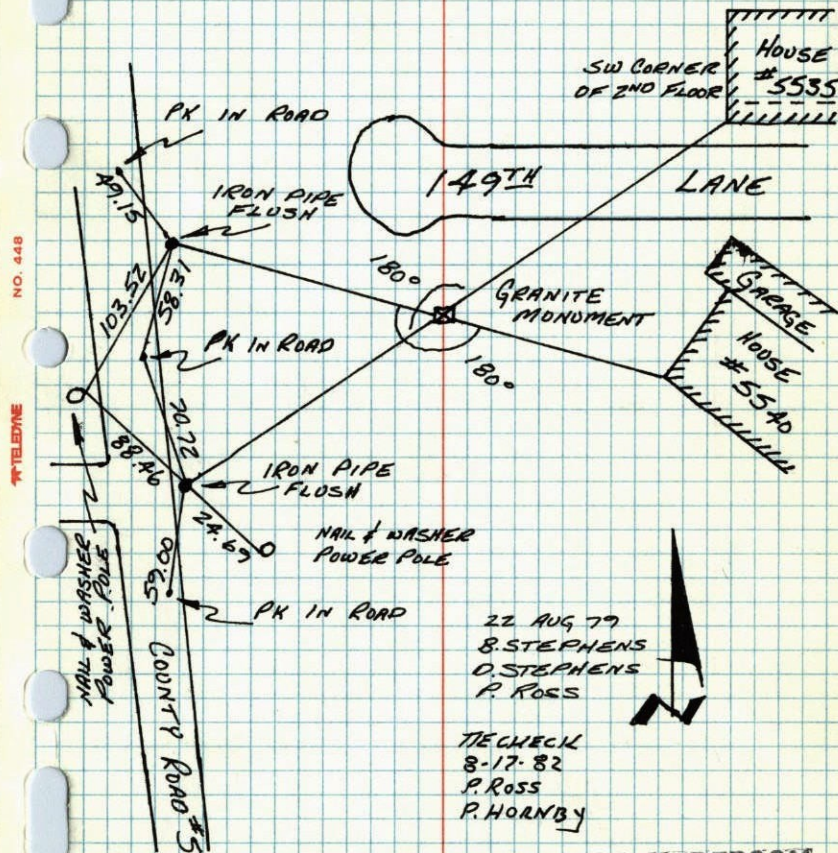 HOUSE
# 5535
SW CORNER
OF 2ND FLOOR
PK IN ROAD
149TH LANE
49.15
IRON PIPE
FLUSH
NO. 448
103.52
58.31
180°
GRANITE
MONUMENT
GARAGE
HOUSE
# 5540
PK IN ROAD
180°
TELEDYNE
70.72
88.46
IRON PIPE
FLUSH
24.69
NAIL & WASHER
POWER POLE
NAIL & WASHER
POWER POLE
59.00
PK IN ROAD
COUNTY ROAD #5
22 AUG 79
B. STEPHENS
D. STEPHENS
P. ROSS
N
TIE CHECK
8-17-82
P. ROSS
P. HORNBY